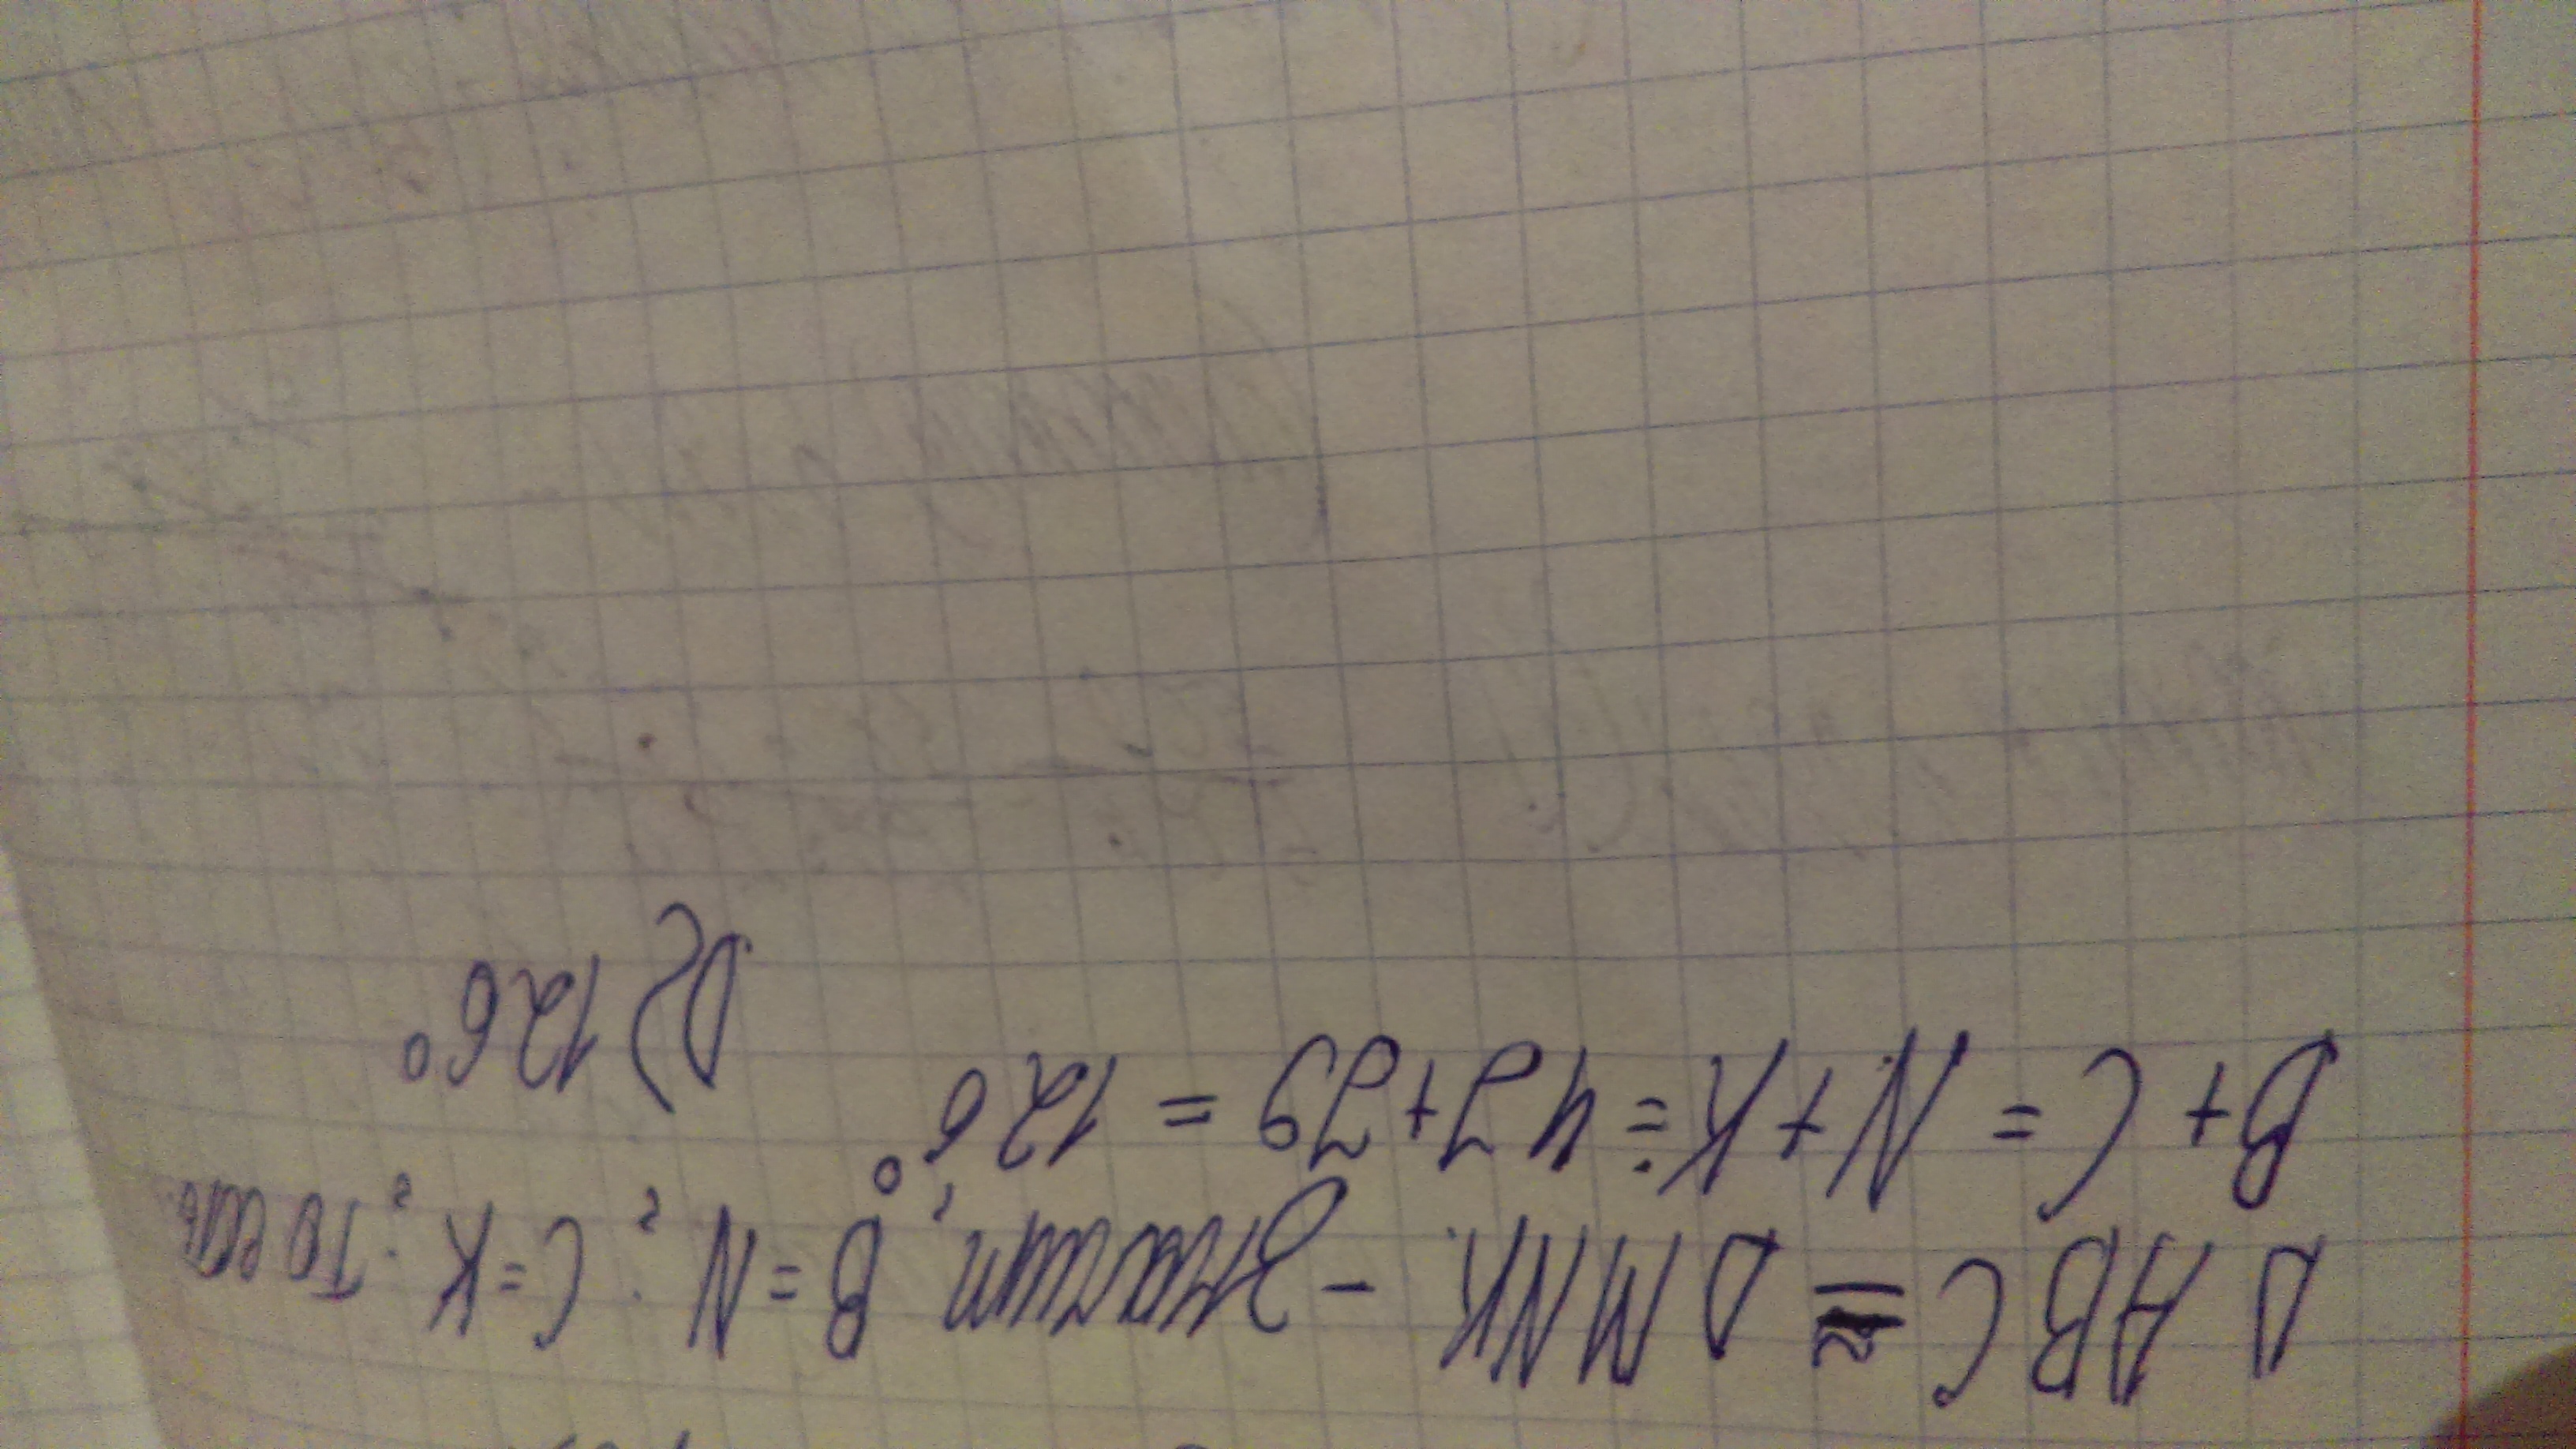 Δ ABC ≅ Δ MNK. - Значит, B = N; C = K; То есть
B + C = N + K = 47 + 79 = 126°
D) 126°